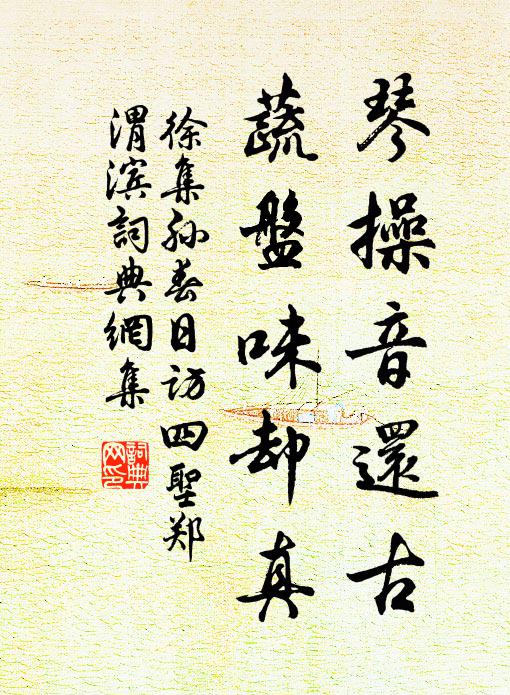 琴操音還古
蔬盤味却真
徐集孙春日访四聖郑
渭滨詞典網集
詞典网印